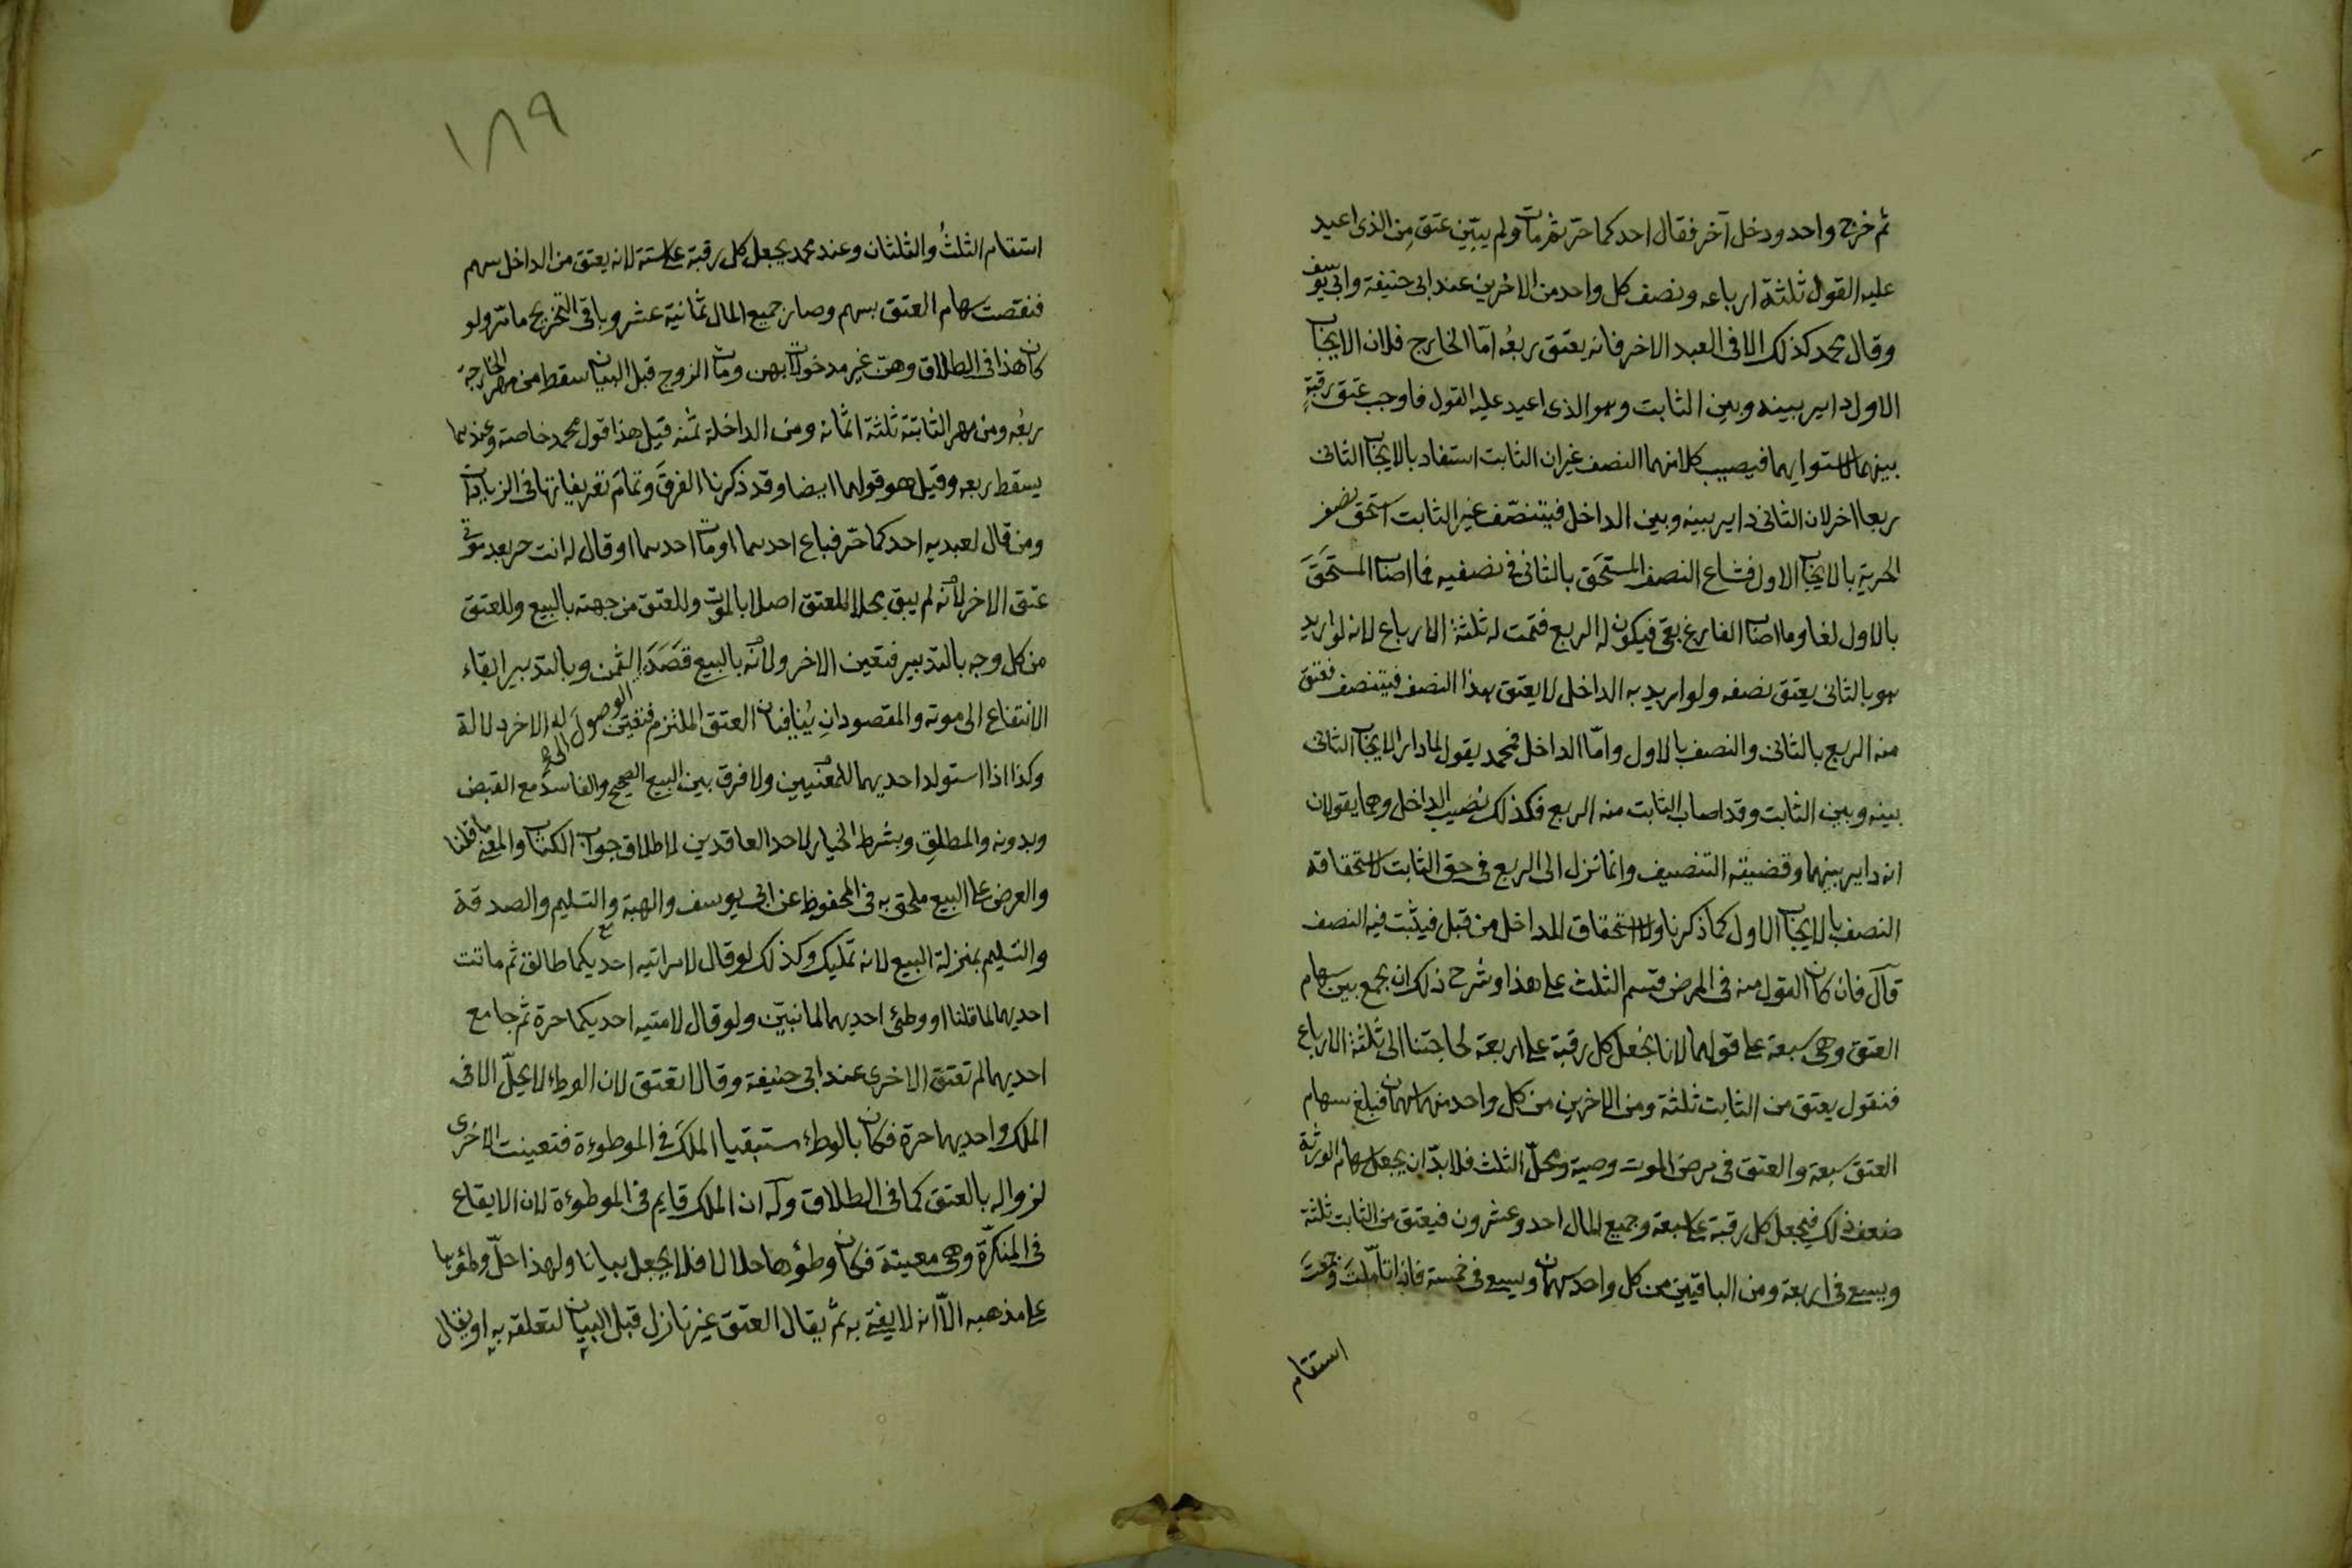 ثم خرج واحد ودخل آخر فقال احدكما حر ثم مات ولم يبين عتق من الذى اعيد
عليه القول ثلثة ارباعه ونصف كل واحد من الاخرين عند ابى حنيفة وابى يوسف
وقال محمد كذلك الا فى العبد الاخر فانه يعتق ربعُه امّا الخارج فلان الايجاب
الاول داير بينه وبين الثابت وهو الذى اعيد عليه القول فاوجب عتق رقبةٍ
بينهما لاستوايهما فيصيب كلا منهما النصف غير ان الثابت استفاد بالايجاب الثانى
ربعا اخر لان الثانى داير بينه وبين الداخل فيتنصّف غير الثابت استحق نصف
الحرية بالايجاب الاول فشاع النصف المستحَق بالثانى فى نصفيه فما اصاب المستحَقَ
بالاول لغا وما اصاب الفارغ بقى فيكون له الربع فتمت له ثلثة الارباع لانه لو اريد
هو بالثانى يعتق نصفه ولو اريد به الداخل لا يعتق هذا النصف فيتنصف فعتق
منه الربع بالثانى والنصف بالاول وامّا الداخل فمحمد يقول لما دار الايجاب الثانى
بينه وبين الثابت وقد اصاب الثابت منه الربع فكذلك نصيب الداخل وهما يقولان
انه داير بينهما وقضيته التنصيف وانما نزل الى الربع فى حق الثابت لاستحقاقه
النصف بالايجاب الاول كما ذكرنا ولا استحقاق للداخل من قبل فيثبت فيه النصف
قال فان كان القول منه فى المرض قسم الثلث على هذا وشرح ذلك ان يجمع بين سهام
العتق وهى سبعة على قولهما لانا نجعل كل رقبة على اربعة لحاجتنا الى ثلثة الارباع
فنقول يعتق من الثابت ثلثة ومن الاخرين من كل واحد منهما سهمان فبلغ سهام
العتق سبعة والعتق فى مرض الموت وصية ومحلّ الثلث فلا بدّ ان يجعل سهام الورثة
ضعف ذلك فيجعل كل رقبة على سبعة وجميع المال احد وعشرون فيعتق من الثابت ثلثة
ويسعى فى اربعة ومن الباقيين من كل واحد سهمان ويسعى فى خمسة فاذا تأمّلتَ وجمعتَ
استقام
١٨٩
استقام الثلثُ والثلثان وعند محمد يجعل كل رقبة على ستة لانه يعتق من الداخل سهم
فنقصت سهام العتق بسهم وصار جميع المال ثمانية عشر وباقى التخريج ما مرّ ولو
كان هذا فى الطلاق وهنّ غير مدخولات بهن ومات الزوج قبل البيان سقط من مهر الخارجة
ربعُه ومن مهر الثابتة ثلثة اثمانه ومن الداخلة ثمنه قيل هذا قول محمد خاصة وعندهما
يسقط ربعه وقيل هو قولهما ايضا وقد ذكرنا الفرقَ وتمامَ تفريعاتها فى الزيادات
ومن قال لعبديه احدكما حرّ فباع احدهما او مات احدهما او قال له انت حر بعد موتى
عتق الاخر لانّه لم يبق محلا للعتق اصلا بالموت وللعتق من جهته بالبيع وللعتق
من كل وجه بالتدبير فتعين الاخر ولانّه بالبيع قصَدَ الوصولَ الى الثمن وبالتدبير ابقاء
الانتفاع الى موته والمقصودانِ يُنافيان العتق الملتزم فتعيّن له الاخر دلالة
وكذا اذا استولد احديهما للمعنيين ولا فرق بين البيع الصحيح والفاسد مع القبض
وبدونه والمطلقِ وبشرط الخيار لاحد العاقدين لاطلاق جواب الكتاب والمعنى ما قلنا
والعرض على البيع ملحق به فى المحفوظ عن ابى يوسف والهبة والتسليم والصدقة
والتسليم بمنزلة البيع لانه تمليك وكذلك لو قال لامراتيه احديكما طالق ثم ماتت
احديهما لما قلنا او وطئ احديهما لما نبيّن ولو قال لامتيه احديكما حرة ثم جامع
احديهما لم تعتق الاخرى عند ابى حنيفة وقالا تعتق لان الوطء لا يحلّ الا فى
الملك واحديهما حرة فكان بالوطء مستبقيا الملكَ فى الموطوءة فتعينت الاخرى
لزواله بالعتق كما فى الطلاق وله ان الملك قايم فى الموطوءة لان الايقاع
فى المنكرّة وهى معينة فكان وطؤها حلالا فلا يجعل بيانا ولهذا حلّ وطؤهما
على مذهبه الّا انه لا يفتى به ثم يقال العتق غير نازل قبل البيان لتعلقه به او يقال